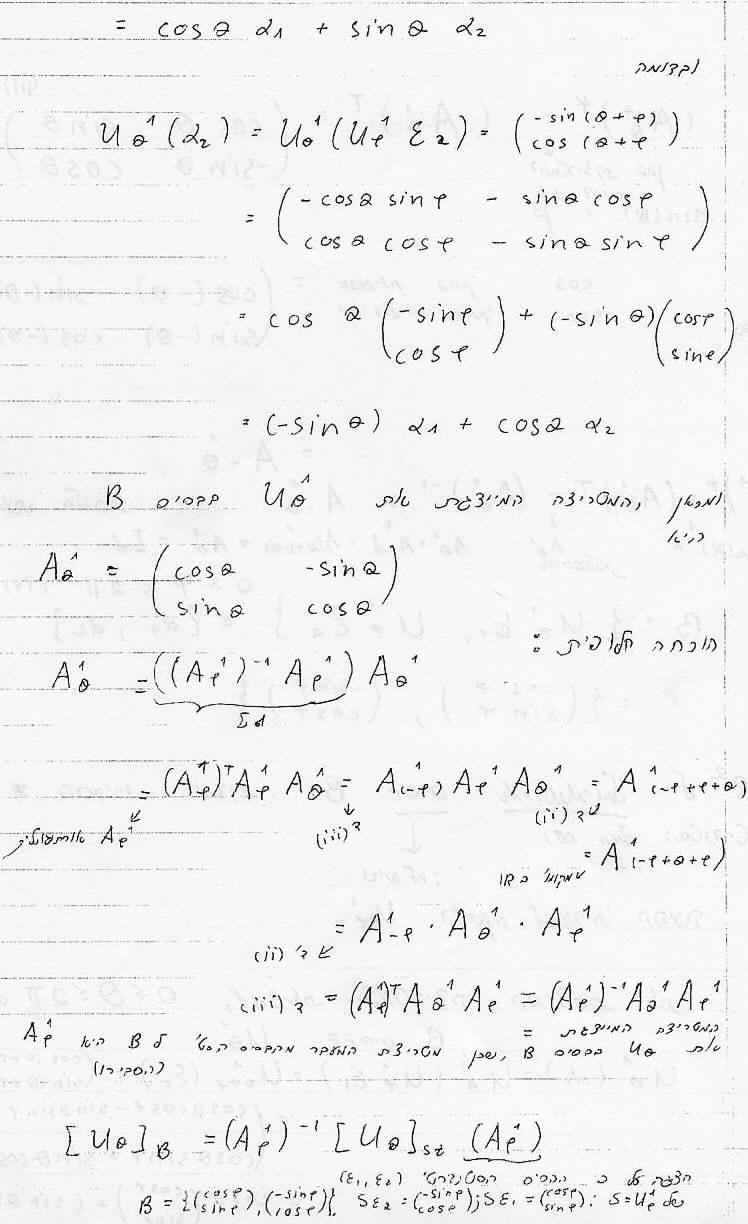 = cosθ α1 + sinθ α2
ובדומה
U_θ^1 (α2) = U_θ^1 (U_φ^1 ε2) = (-sin(θ+φ) / cos(θ+φ)
= (-cosθ sinφ - sinθ cosφ / cosθ cosφ - sinθ sinφ)
= cos θ (-sinφ / cosφ) + (-sinθ) (cosφ / sinφ)
= (-sinθ) α1 + cosθ α2
ומכאן, המטריצה המייצגת את U_θ^1 בבסיס B
היא
A_θ^1 = (cosθ -sinθ / sinθ cosθ)
הוכחה חלופית:
A_θ^1 = ((A_φ^1)^-1 A_φ^1) A_θ^1
Id
= (A_φ^1)^T A_φ^1 A_θ^1 = A^1_(-φ) A_φ^1 A_θ^1 = A^1_(-φ+φ+θ)
A_φ^1 אורתוגונלית (iii) ד' (ii) ד'
= A^1_(-φ+θ+φ)
= A^1_-φ · A_θ^1 · A_φ^1
(ii) ד'
(iii) ד' = (A_φ^1)^T A_θ^1 A_φ^1 = (A_φ^1)^-1 A_θ^1 A_φ^1
= המטריצה המייצגת
את U_θ בבסיס B, שכן מטריצת המעבר מהבסיס הסט' ל B היא A_φ^1
[U_θ]_B = (A_φ^1)^-1 [U_θ]_St (A_φ^1)
הבסיס הסטנדרטי (ε1, ε2)
של S=U_φ^1 : Sε1 = (cosφ / sinφ) ; Sε2 = (-sinφ / cosφ) B = {(cosφ / sinφ), (-sinφ / cosφ)}